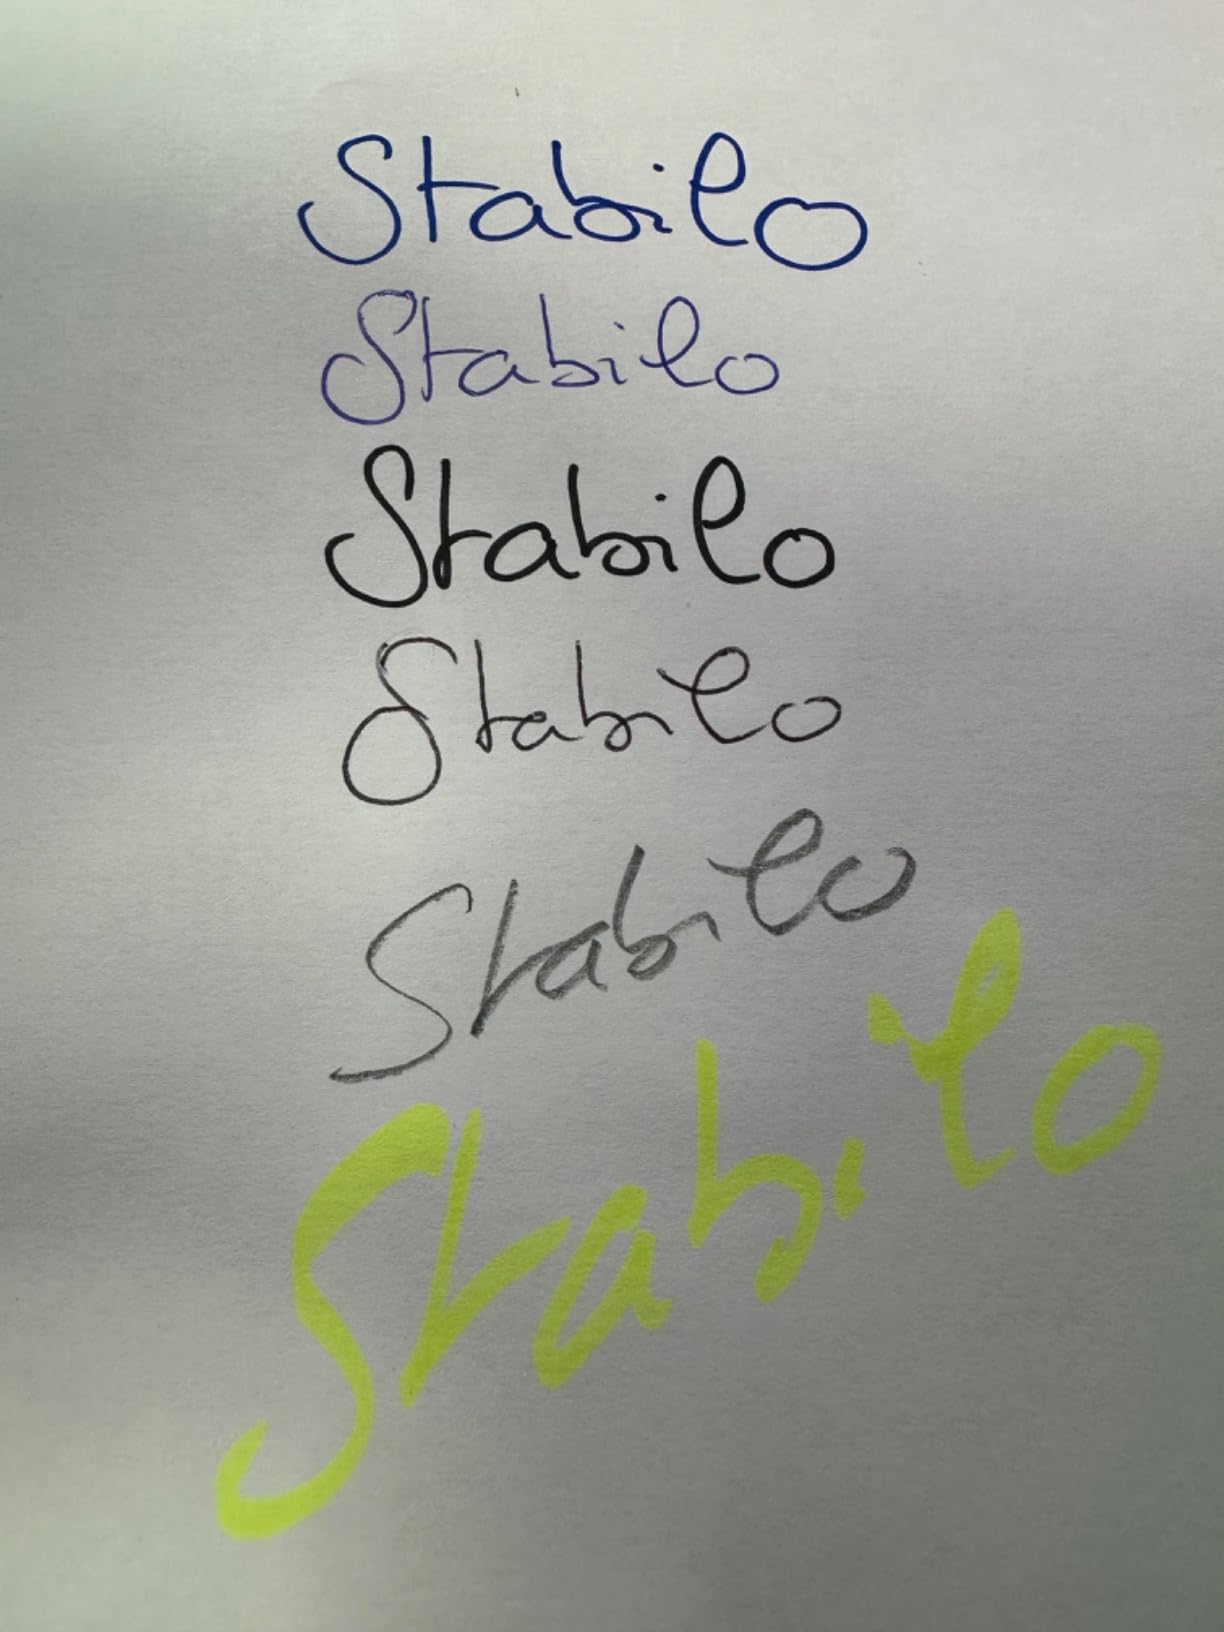 Stabilo
Stabilo
Stabilo
Stabilo
Stabilo
Stabilo